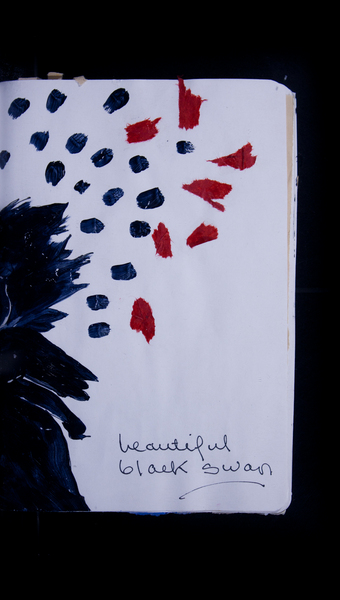 beautiful
black swan